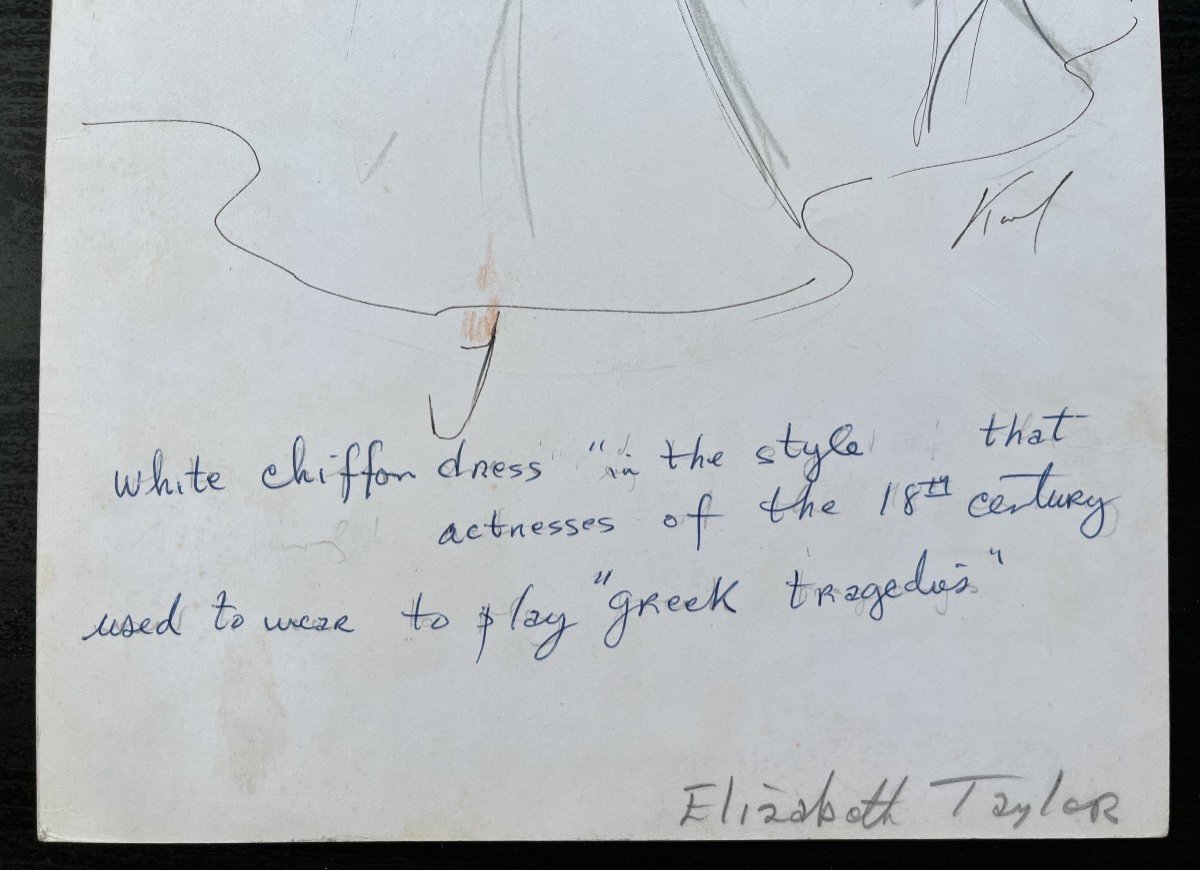 Karl
white chiffon dress "in the style that
actresses of the 18th century
used to wear to play "greek tragedies"
Elizabeth Taylor